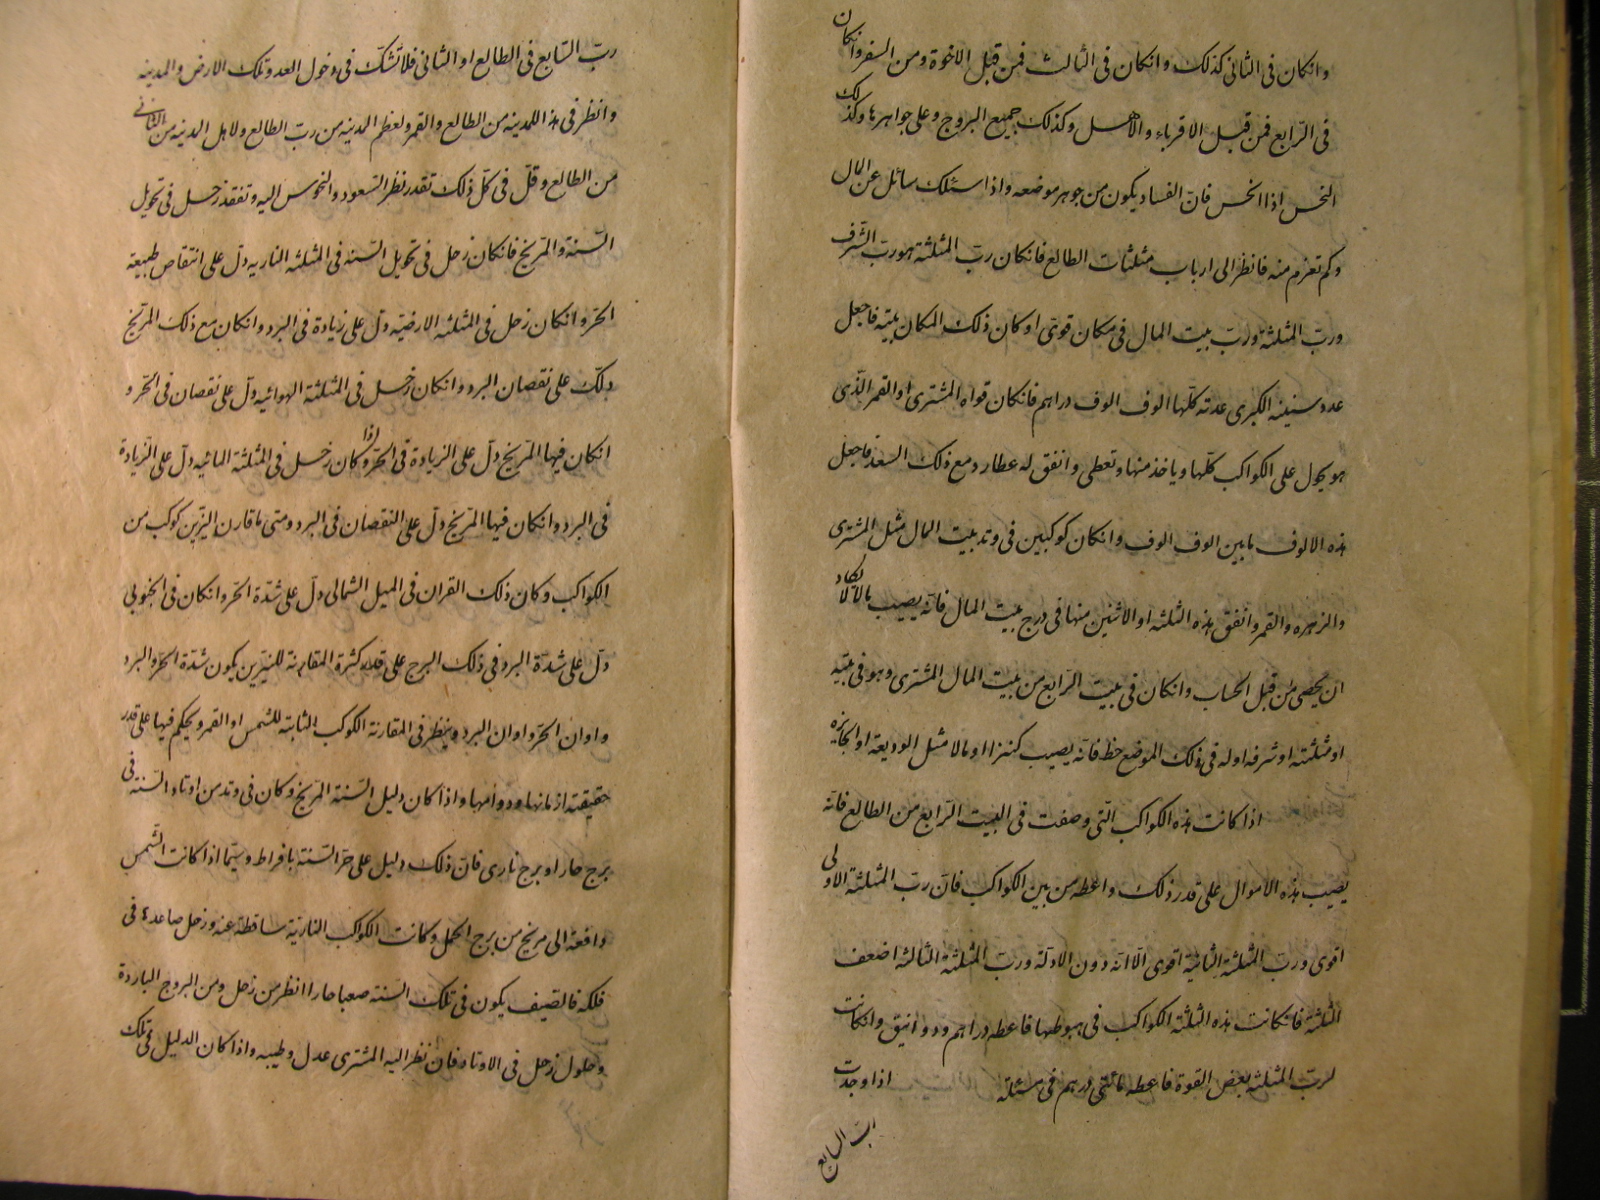 وانكان فى الثانى كذلك وانكان فى الثالث فمن قبل الاخوة ومن السفر وانكان
فى الرّابع فمن قبل الاقرباء والاهل وكذلك جميع البروج وعلى جواهرها وكذلك
النحس اذا انحس فانّ الفساد يكون من جوهر موضعه واذا سئلك سائل عن المال
وكم تعزم منه فانظر الى ارباب مثلثات الطالع فانكان ربّ المثلثة هو ربّ الشرف
وربّ المثلثة وربّ بيت المال فى مكان قوىّ او كان ذلك المكان بيته فاجعل
عدد سنينه الكبرى عدته كلّها الوف الوف دراهم فانكان قواه المشترى او القمر الّذى
هو يحول على الكواكب كلّها وياخذ منها وتعطى واتفق له عطارد مع ذلك السعد فاجعل
هذه الالوف ما بين الوف الوف وانكان كوكبين فى وتد بيت المال مثل المشترى
والزهره والقمر واتفق هذه الثلثه او الاثنين منها فى درج بيت المال فانّه يصيب مالا لا يكاد
ان يحصى من قبل الحساب وانكان فى بيت الرّابع من بيت المال المشترى وهو فى بيته
او مثلثته او شرفه او له فى ذلك الموضع حظ فانّه يصيب كنزا او مالا مثل الوديعة او الجايزه
اذا كانت هذه الكواكب الّتى وصفت فى البيت الرّابع من الطالع فانّه
يصيب هذه الاموال على قدر ذلك واعطه من بين الكواكب فانّ ربّ المثلثة الاولى
اقوى وربّ المثلثة الثانية اقوى الّا انّه دون الاوّلة وربّ المثلثة الثالثه اضعف
الثلثة فانكانت هذه الثلثة الكواكب فى هبوطها فاعطه دراهم ودوانيق وانكانت
لربّ المثلثه بعض القوة فاعطه مائتى درهم فى مسئلة اذا وجدت
ربّ السابع
ربّ السّابع فى الطالع او الثانى فلا تشكّ فى دخول العدو تلك الارض والمدينه
وانظر فى هذا للمدينه من الطالع والقمر ولعظم المدينه من ربّ الطالع ولاهل المدينه من الثانى
من الطالع وقل فى كلّ ذلك تقدر نظر السّعود والنحوس اليه وتفقد زحل فى تحويل
السّنة والمرّيخ فانكان زحل فى تحويل السّنه فى المثلثه الناريه دلّ على انتقاص طبيعة
الحرّ وانكان زحل فى المثلثه الارضيّه دلّ على زيادة فى البرد وانكان مع ذلك المرّيخ
دلّك على نقصان البرد وانكان زحل فى المثلثة الهوائيه دلّ على نقصان فى الحرّ و
انكان فيها المرّيخ دلّ على الزيادة فى الحرّ واذا كان زحل فى المثلثة المائيه دلّ على الزّيادة
فى البرد وانكان فيها المرّيخ دلّ على النقصان فى البرد ومتى ما قارن النيّرين كوكب من
الكواكب وكان ذلك القران فى الميل الشمالى دلّ على شدّة الحرّ وانكان فى الجنوبى
دلّ على شدّة البرد فى ذلك البرج على قدر كثرة المقارنة للنيّرين يكون شدّة الحرّ والبرد
و اوان الحرّ واوان البرد وينظر فى المقارنة الكوكب الثابتة للشمس او القمر ويحكم فيها على قدر
حقيقته ازمانها ودوامها واذا كان دليل السّنة المرّيخ وكان فى وتد من اوتاد السّنة فى
برج حار او برج نارى فانّ ذلك دليل على حرّ السّنة بافراط وسيّما اذا كانت الشّمس
دافعة الى مريخ من برج الحمل وكانت الكواكب الناريّة ساقطة عنه وزحل صاعدة فى
فلكه فالصّيف يكون فى تلك السّنه صعبا حارا انظر من زحل ومن البروج الباردة
وحلول زحل فى الاوتاد فان نظر اليه المشترى عدل وطيبه واذا كان الدليل فى تلك